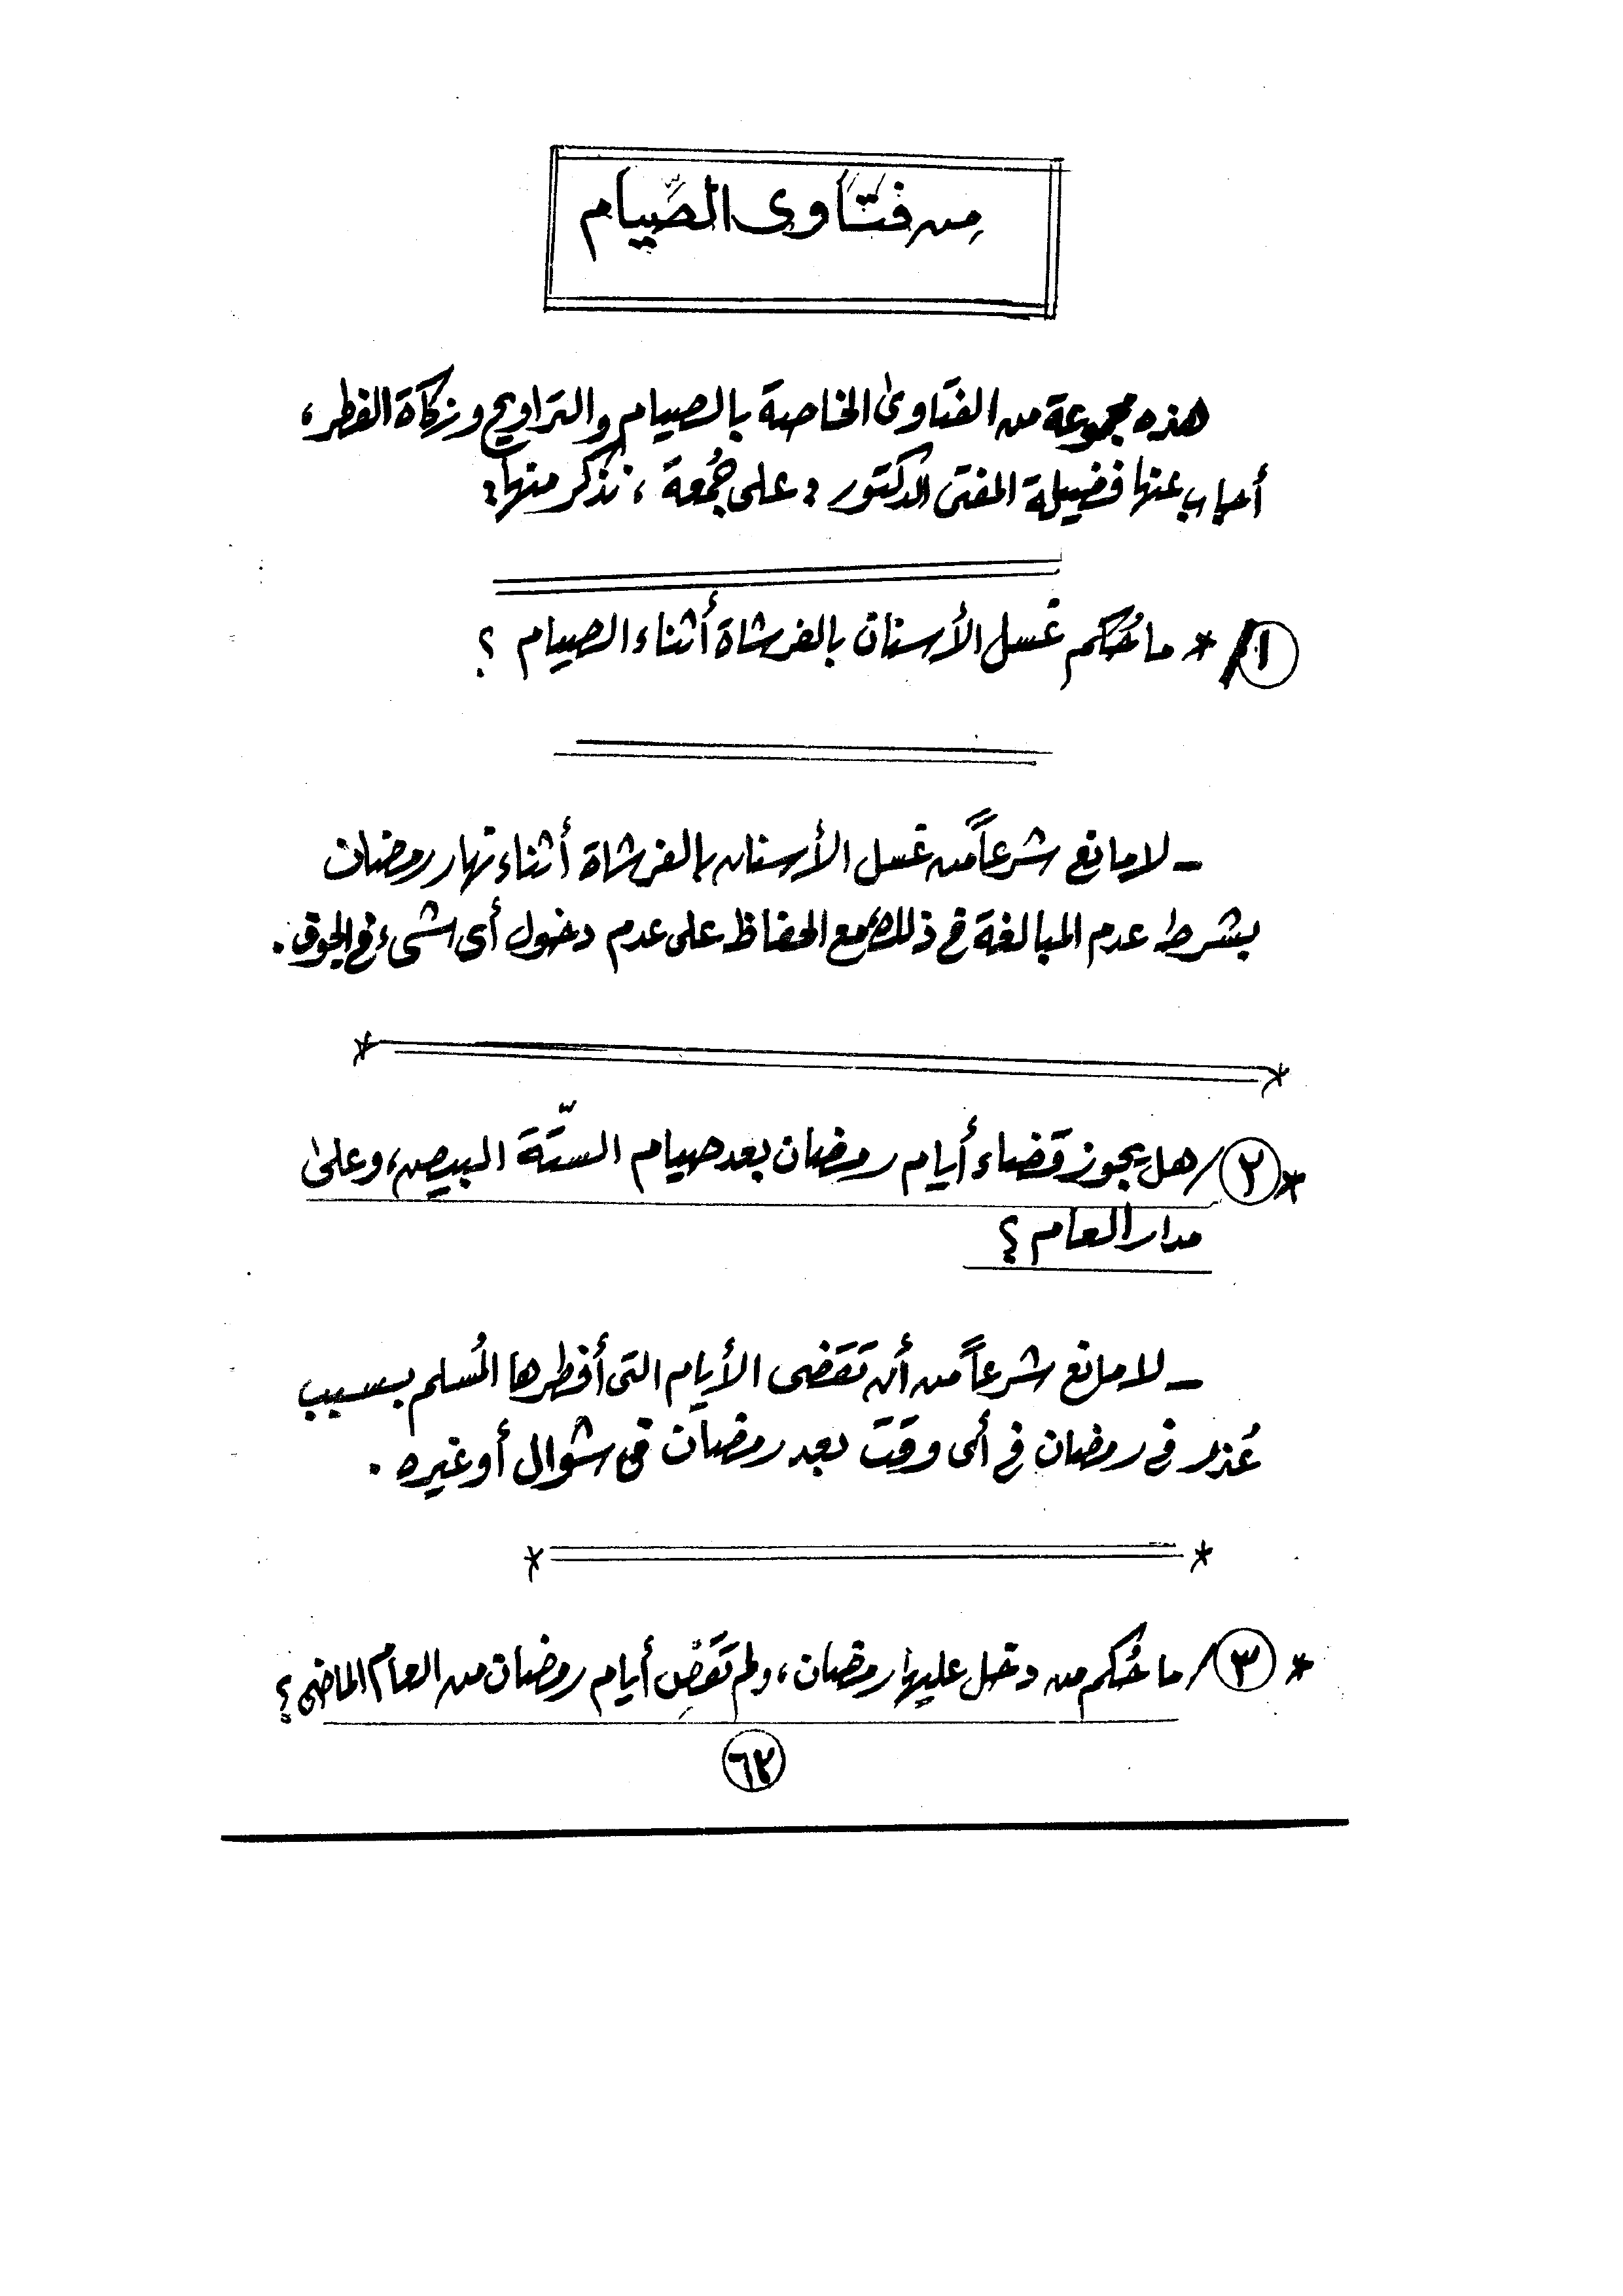 من فتاوى الصّيام
هذه مجموعة من الفتاوىٰ الخاصة بالصيام والتراويح وزكاة الفطر،
أجاب عنها فضيلة المفتى الدكتور: على جُمعة، نذكر منها:
١/ * ما حُكم غسل الأسنان بالفرشاة أثناء الصيام ؟
ـ لا مانع شرعاً من غسل الأسنان بالفرشاة أثناء نهار رمضان
بشرط عدم المبالغة فى ذلك مع الحفاظ على عدم دخول أى شىء فى الجوف.
* ٢/ هل يجوز قضاء أيام رمضان بعد صيام الستّة البيض، وعلىٰ
مدار العام ؟
ـ لا مانع شرعاً من أن تقضى الأيام التى أفطرها المُسلم بسبب
عُذر فى رمضان فى أى وقت بعد رمضان فى شوال أو غيره .
* ٣/ ما حُكم من دخل عليها رمضان، ولم تقضِ أيام رمضان من العام الماضى ؟
٦٢